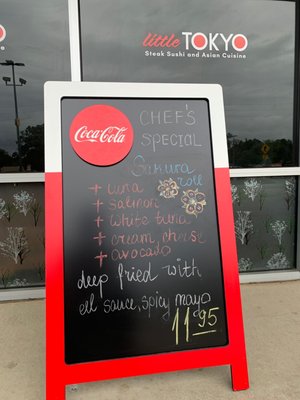 little TOKYO
Steak Sushi and Asian Cuisine
Coca-Cola
CHEF'S
Special
Sakura
roll
+ tuna
+ salmon
+ white tuna
+ cream cheese
+ avocado
deep fried with
eel sauce, spicy mayo
11.95